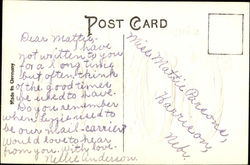 POST CARD
Dear Mattie.
I have
not written to you
for a long time
but often think
of the good times
we used to have.
Do you remember
when Lizzie used to
be our mail-carrier
would love to hear
from you, with love.
Nellie Anderson.
Made in Germany
Miss. Matti Parsons
Harrison
Neb.